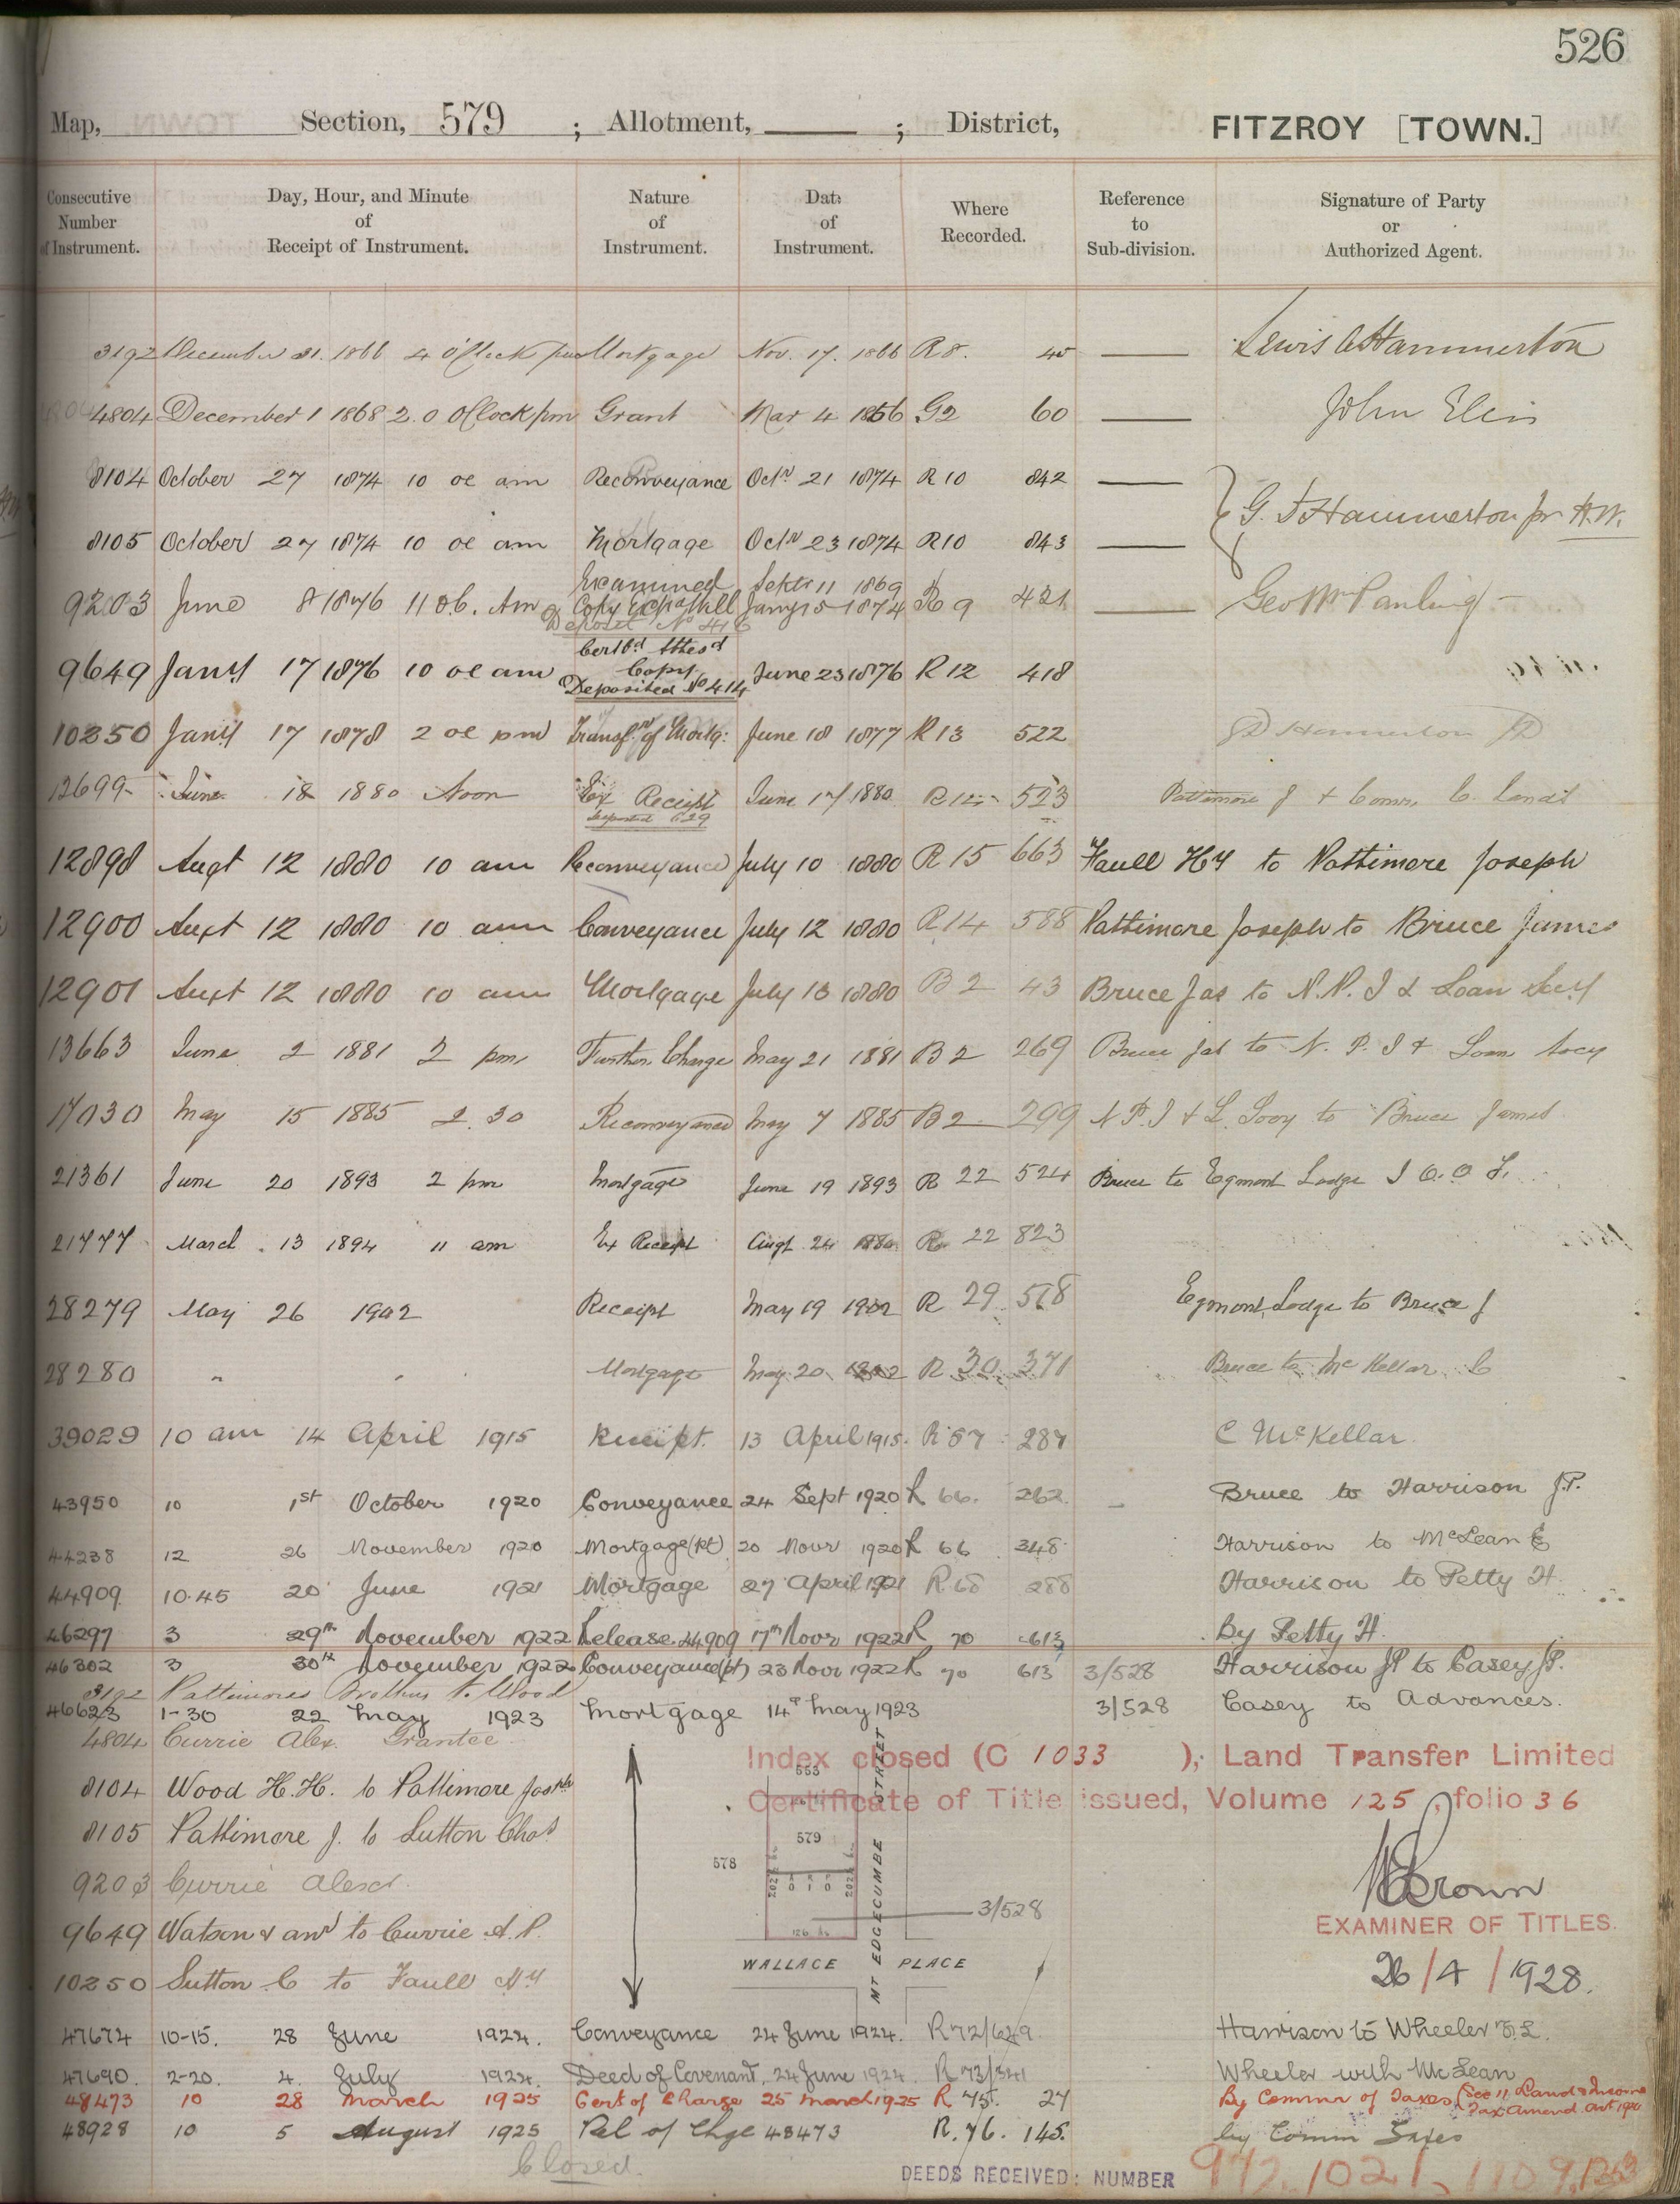 526
Map, Section, 579 ; Allotment, ; District, FITZROY [TOWN.]
Consecutive Number of Instrument. Day, Hour, and Minute of Receipt of Instrument. Nature of Instrument. Date of Instrument. Where Recorded. Reference to Sub-division. Signature of Party or Authorized Agent.
3192 December 31. 1866 4 O'Clock pm Mortgage Nov. 17. 1866 R 8. 45 Lewis Hammerton
4804 December 1 1868 2.0 O'Clock pm Grant Mar 4 1856 G2 60 John Elin
8104 October 27 1874 10 oc am Reconveyance Octr 21 1874 R 10 842
G. F Hammerton for H.W.
8105 October 27 1874 10 oc am Mortgage Octr 23 1874 R10 843
Examined Septr 11 1869
9203 June 8 1876 11 Am Copy Will Jany 15 1874 R 9 421
Deposit No 416
Certfd Attesd
9649 Jany 17 1876 10 oc am Copy June 23 1876 R 12 418
Deposited No 414
10250 Jany 17 1878 2 oc pm Transfr of Mortg: June 18 1877 R 13 522 Hammerton
12699 June 18 1880 Noon Ex Receipt June 17 1880 523 Pattimore J + Comr. C. Lands
Deposited 629
12898 Augt 12 1880 10 am Reconveyance July 10 1880 R 15 663 Faull Hy to Pattimore Joseph
12900 Augt 12 1880 10 am Conveyance July 12 1880 R 14 588 Pattimore Joseph to Bruce James
12901 Augt 12 1880 10 am Mortgage July 13 1880 B 2 43 Bruce Jas to N.P. I & Loan Socy
13663 June 2 1881 2 pm Further Charge May 21 1881 B 2 269 Bruce Jas to N. P. I & Loan Socy
17030 May 15 1885 2.30 Reconveyance May 7 1885 B 2 299 N P. I & L. Socy to Bruce James
21361 June 20 1893 2 pm Mortgage June 19 1893 R 22 524 Bruce to Egmont Lodge I O. O F.
21777 March 13 1894 11 am Ex Receipt Augt 24 R 22 823
28279 May 26 1902 Receipt May 19 1902 R 29 518 Egmont Lodge to Bruce J
28280 " " Mortgage May 20 1902 R 30. 371 Bruce to McKellar C
39029 10 am 14 April 1915 Receipt. 13 April 1915. R 57 287 C McKellar
43950 10 1st October 1920 Conveyance 24 Sept 1920 R 66. 262. Bruce to Harrison J.P.
44238 12 26 November 1920 Mortgage (pt) 20 Novr 1920 R 66 348 Harrison to McLean
44909 10.45 20 June 1921 Mortgage 27 April 1921 R. 68 288 Harrison to Petty H.
46297 3 29th November 1922 Release 44909 17th Novr 1922 R 70 613 By Petty H.
46302 3 30th November 1922 Conveyance (pt) 23 Novr 1922 R 70 613 3/528 Harrison JP to Casey JP.
3192 Pattimores Brothers to Wood
46623 1-30 22 May 1923 Mortgage 14th May 1923 3/528 Casey to Advances.
4804 Currie Alex. Grantee
Index closed (C 1033 ), Land Transfer Limited
8104 Wood H.H. to Pattimore Josph
Certificate of Title issued, Volume 125, folio 36
8105 Pattimore J. to Sutton Chas
553
579
578
9203 Currie Alexd.
3/528
EXAMINER OF TITLES.
9649 Watson & anr to Currie A. P.
WALLACE PLACE
MT EDGECUMBE STREET
26/4/1928.
10250 Sutton C to Faull Hy
47674 10-15. 28 June 1924. Conveyance 24 June 1924. R 72/629 Harrison to Wheeler F.L.
47690. 2-20. 4. July 1924. Deed of Covenant. 24 June 1924. R 73/341 Wheeler with McLean
48473 10 28 March 1925 Cert of Charge 25 March 1925 R 75. 27 By Commr of Taxes (Sec 11 Land & Income Tax Amend Act
48928 10 5 August 1925 Rel of Chge 48473 R. 76. 145. by Comm Taxes
Closed.
DEEDS RECEIVED: NUMBER 972, 1021, 1109, 1263